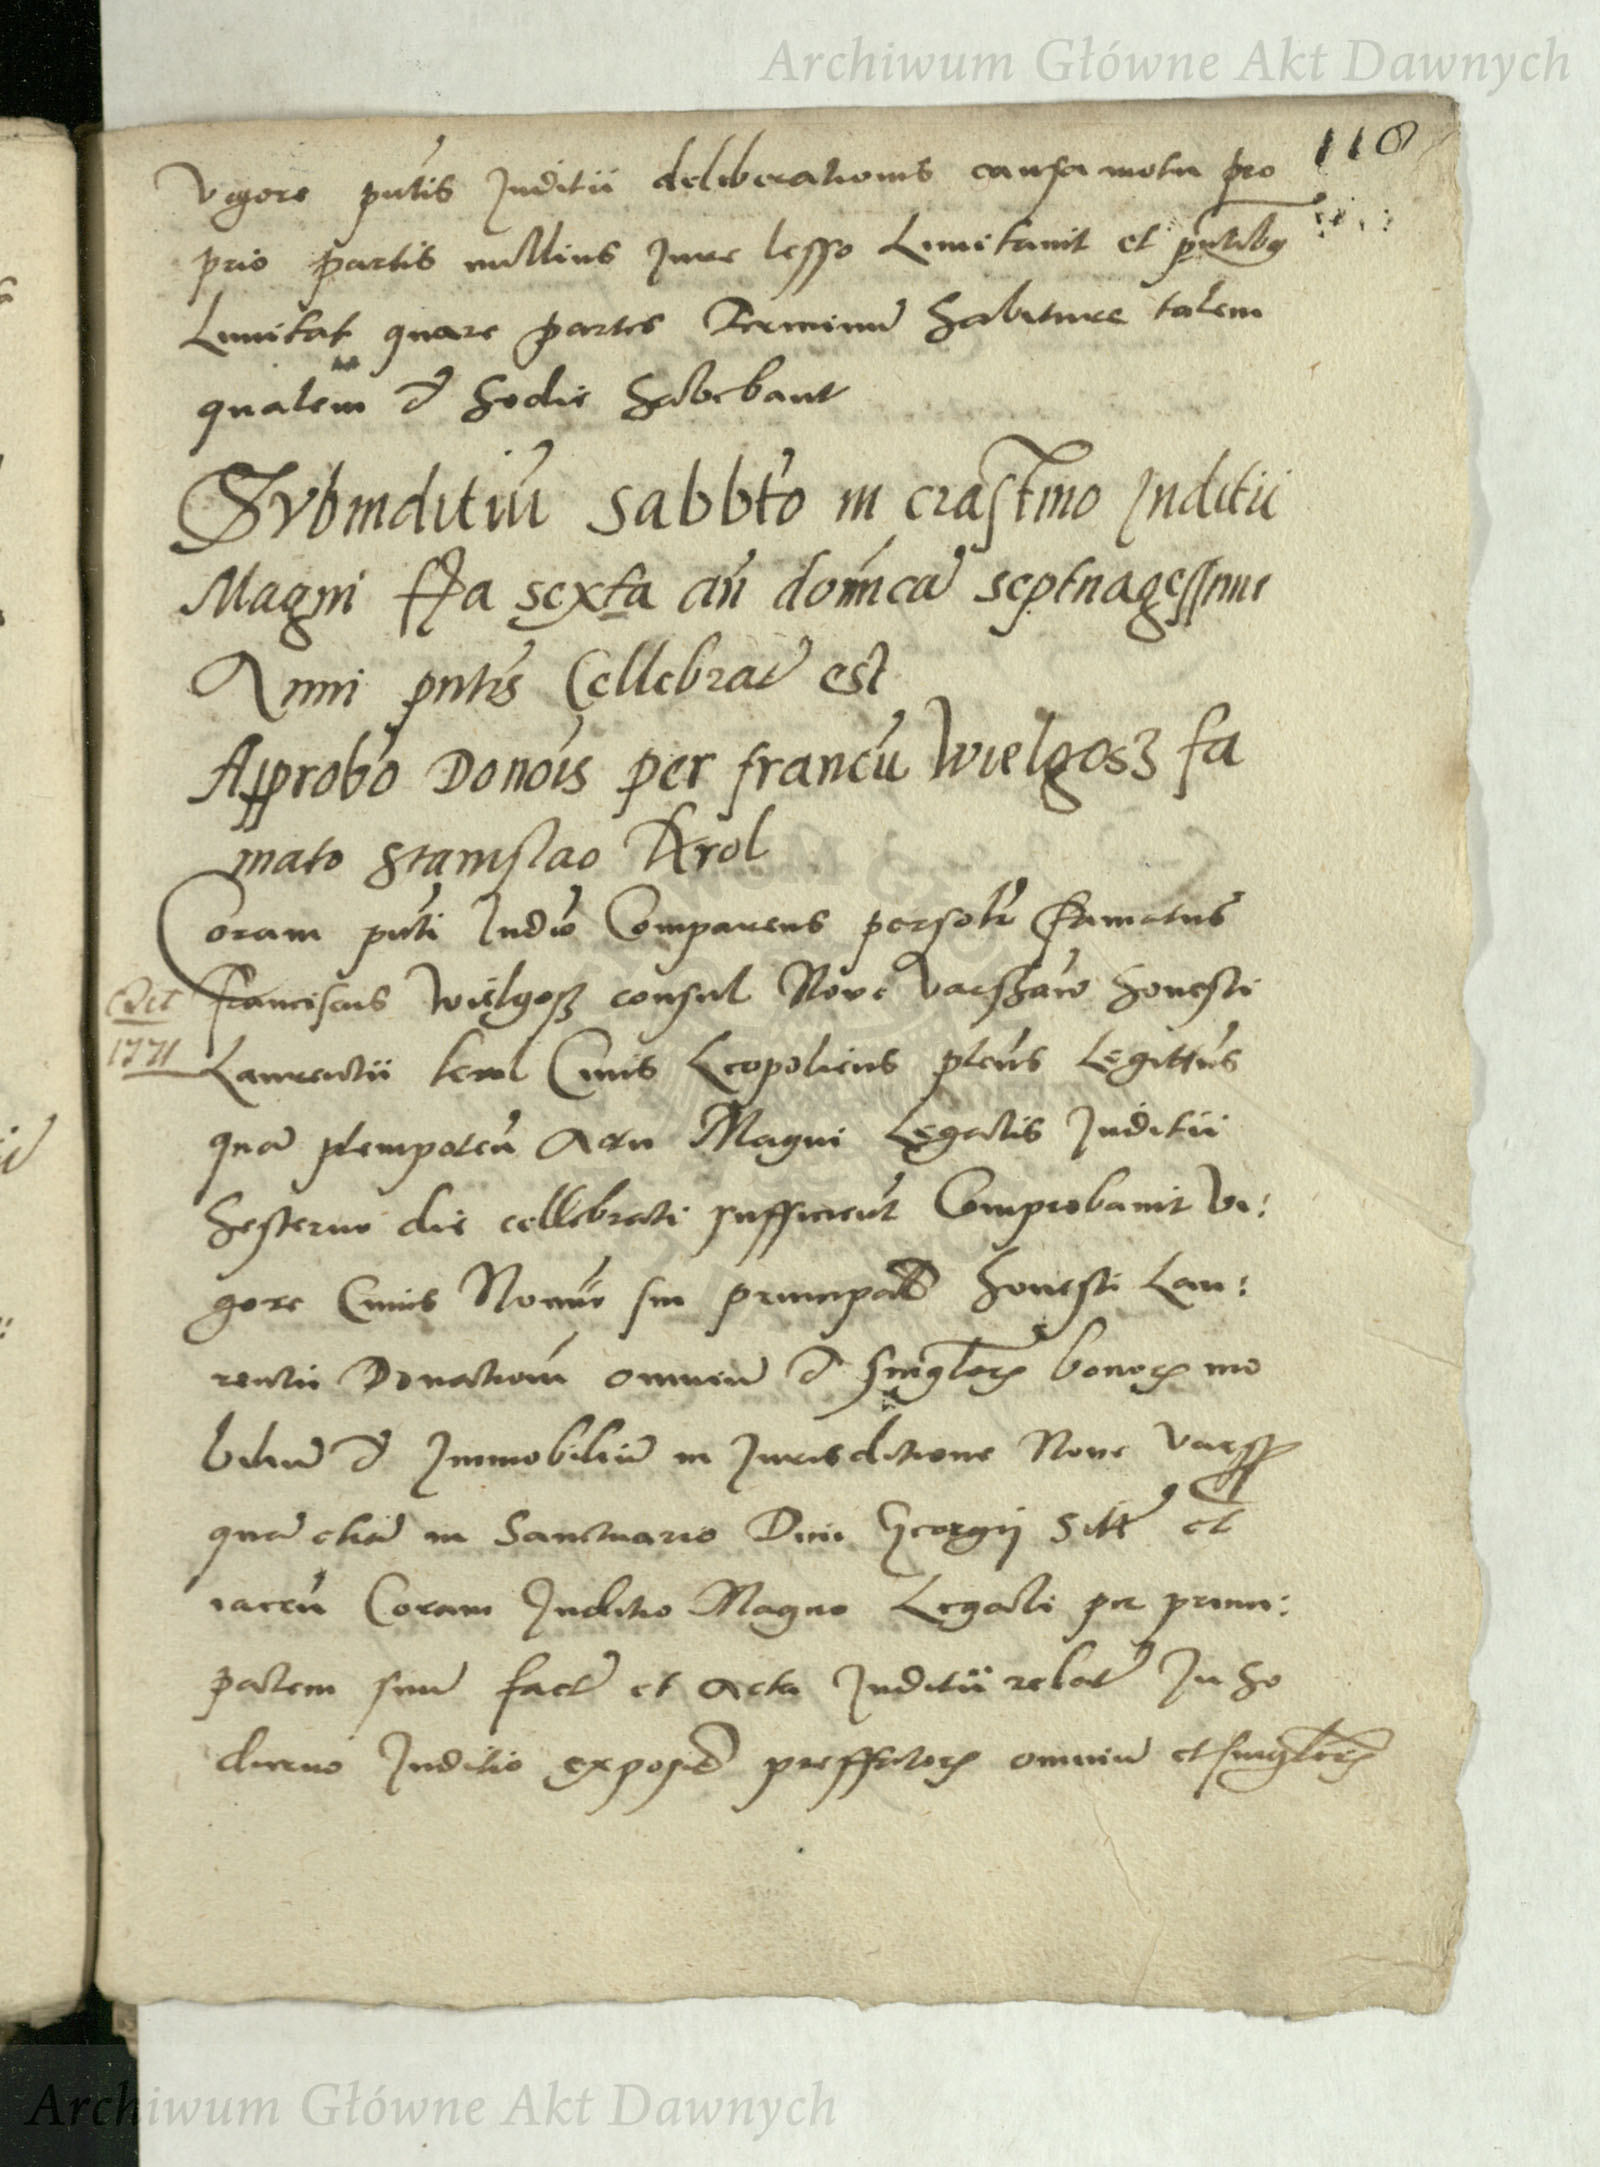 Archiwum Główne Akt Dawnych
118
vigore pntis Juditii deliberationis causa motu pro
prio partis nullius Jure lesso Limitavit et pntibq
Limitat quare partes Terminu habiture talem
qualem et hodie habebant
Subiuditiu sabbto in crastino Juditii
Magni ffa sexta an domca septuagessime
Anni pntis Cellebrat est
Approbo Donois per francu Wielgosz fa
mato Stanislao Krol
Coram pnti Judio Comparens persolr famatus
franciscus Wielgosz consul Nove Varschav honesti
1771
Laurentii krol Civis Leopoliens plens Legittus
qua plempoten Actu Magni Legalis Juditii
hesterno die cellebrati sufficient Comprobavit Vi:
gore Cuius Nomine sui principal honesti Lau:
rentii Donationem omniu et singlor bonor mo
biliu et Immobiliu in Jurisditione Nove Varss
qua etia in Sanctuario Divi Georgij Sitt et
iacen Coram Juditio Magno Legali per princi:
palem suu fact et Acta Juditii robot In ho
dierno Juditio exposit preffator omniu et singlor
Archiwum Główne Akt Dawnych